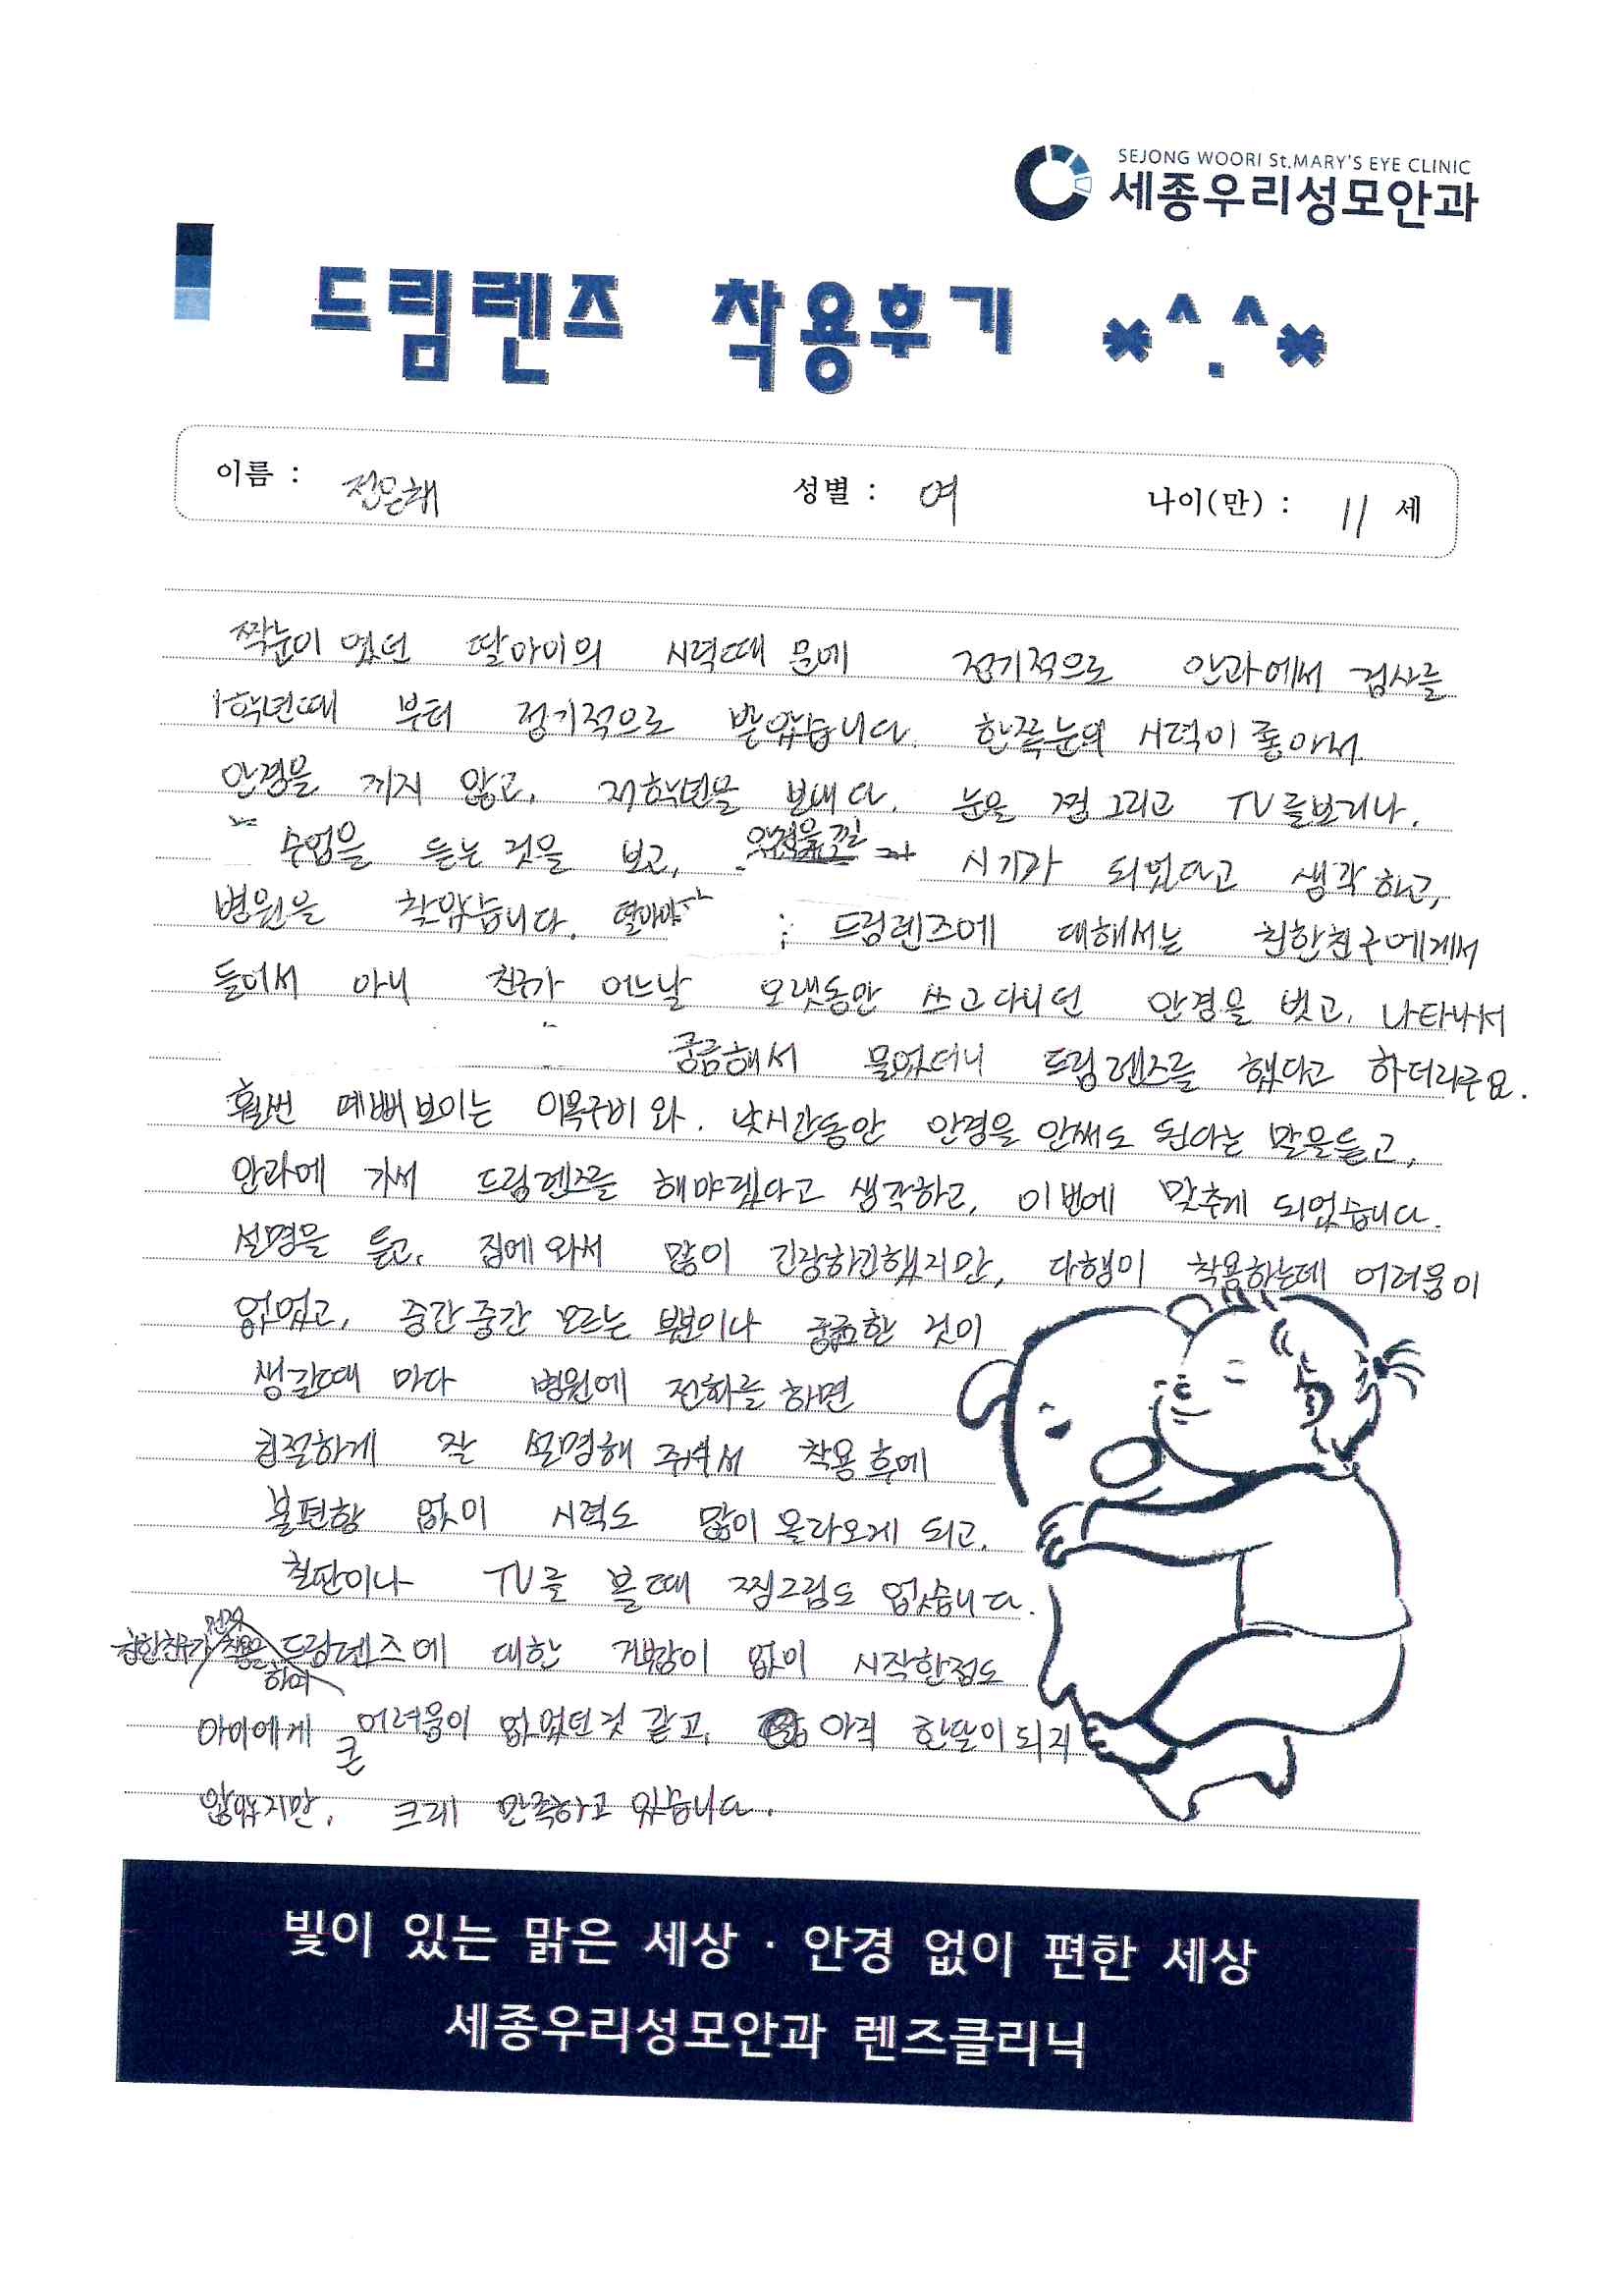 SEJONG WOORI St.MARY'S EYE CLINIC
세종우리성모안과
드림렌즈 착용후기 *^.^*
이름 : 전은해 성별 : 여 나이(만) : 11 세
짝눈이 였던 딸아이의 시력때문에 정기적으로 안과에서 검사를
1학년때 부터 정기적으로 받았습니다. 한쪽눈의 시력이 좋아서
안경을 끼지 않고, 저학년을 보내다. 눈을 찡그리고 TV를보거나.
수업을 듣는 것을 보고, 안경을 낄 시기가 되었다고 생각하고,
병원을 찾았습니다. 드림렌즈에 대해서는 친한친구에게서
들어서 아니 친구가 어느날 오랫동안 쓰고다니던 안경을 벗고, 나타나서
궁금해서 물었더니 드림렌즈를 했다고 하더라구요.
훨씬 예뻐보이는 이목구비와. 낮시간동안 안경을 안써도 된다는 말을듣고,
안과에 가서 드림렌즈를 해야겠다고 생각하고, 이번에 맞추게 되었습니다.
설명을 듣고, 집에와서 많이 긴장하긴했지만, 다행이 착용하는데 어려움이
없었고, 중간중간 모르는 부분이나 궁금한 것이
생길때 마다 병원에 전화를 하면
친절하게 잘 설명해 주셔서 착용후에
불편함 없이 시력도 많이 올라오게 되고,
칠판이나 TV를 볼때 찡그림도 없습니다.
친한친구가 먼저 착용을 하여 드림렌즈에 대한 거부감이 없이 시작한점도
아이에게 큰 어려움이 없었던것 같고, 아직 한달이되지
않았지만, 크게 만족하고 있습니다.
빛이 있는 맑은 세상 · 안경 없이 편한 세상
세종우리성모안과 렌즈클리닉